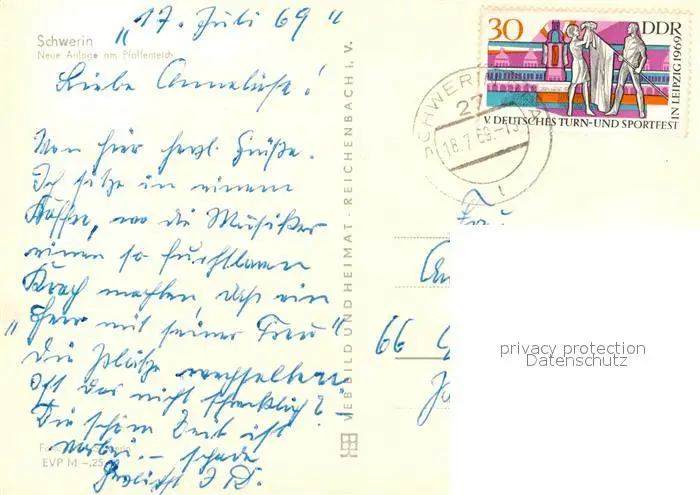 "17. Juli 69"
Schwerin
Neue Anlage am Pfaffenteich
Liebe Anneliese!
Von hier herzl. Grüße.
Ich sitze in einem
Kaffee, wo die Musiker
einen so furchtbaren
Krach machten, daß ein
"Herr mit seiner Frau"
die Plätze wechselten
Ist das nicht schrecklich?
Die schöne Zeit ist
vorbei. – schade
Herzlichst
EVP M –,25
VEB BILD UND HEIMAT · REICHENBACH i. V.
30 DDR
V. DEUTSCHES TURN- UND SPORTFEST
IN LEIPZIG 1969
SCHWERIN
27
18.7.69.-13
Frau
66
privacy protection
Datenschutz